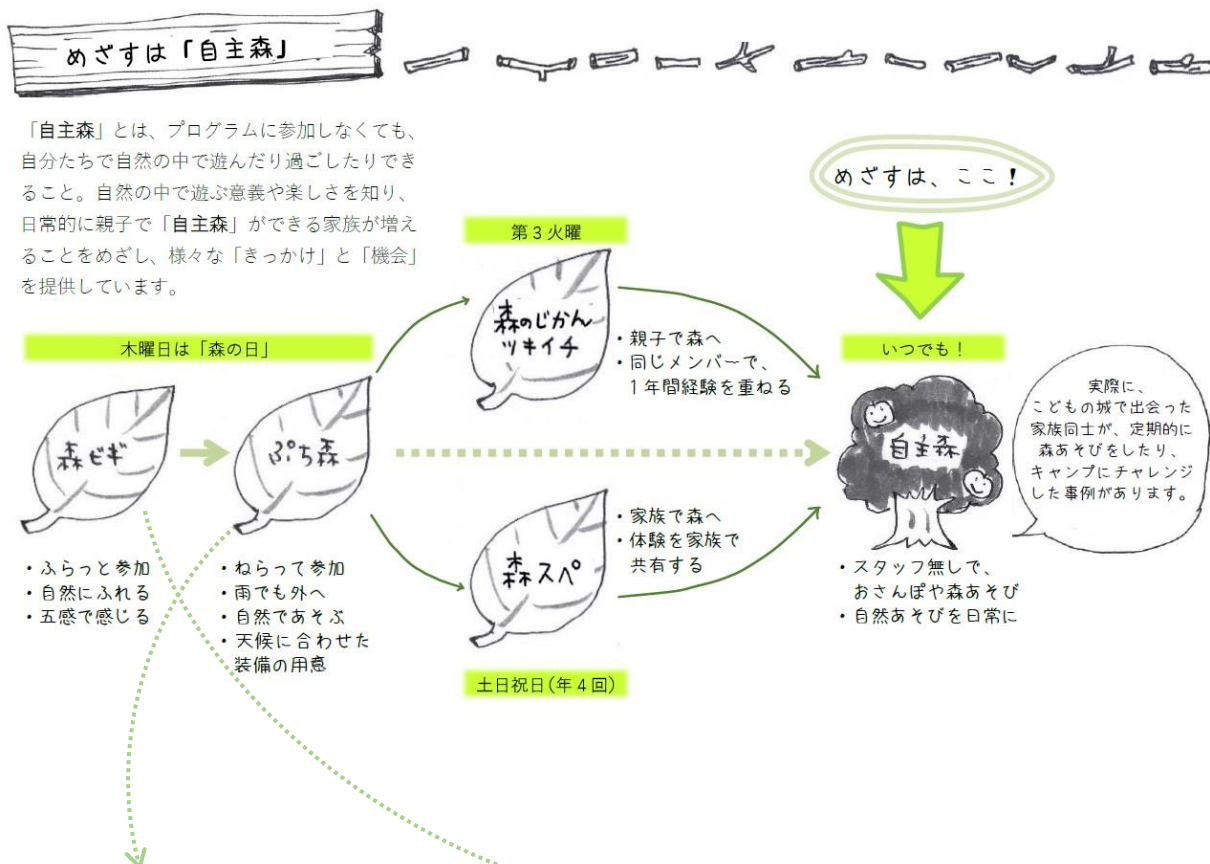 めざすは「自主森」
「自主森」とは、プログラムに参加しなくても、
自分たちで自然の中で遊んだり過ごしたりでき
ること。自然の中で遊ぶ意義や楽しさを知り、
日常的に親子で「自主森」ができる家族が増え
ることをめざし、様々な「きっかけ」と「機会」
を提供しています。
めざすは、ここ！
木曜日は「森の日」
森ビギ
・ふらっと参加
・自然にふれる
・五感で感じる
ぷち森
・ねらって参加
・雨でも外へ
・自然であそぶ
・天候に合わせた
装備の用意
第３火曜
森のじかん
ツキイチ
・親子で森へ
・同じメンバーで、
１年間経験を重ねる
森スペ
・家族で森へ
・体験を家族で
共有する
土日祝日(年４回)
いつでも！
自主森
・スタッフ無しで、
おさんぽや森あそび
・自然あそびを日常に
実際に、
こどもの城で出会った
家族同士が、定期的に
森あそびをしたり、
キャンプにチャレンジ
した事例があります。